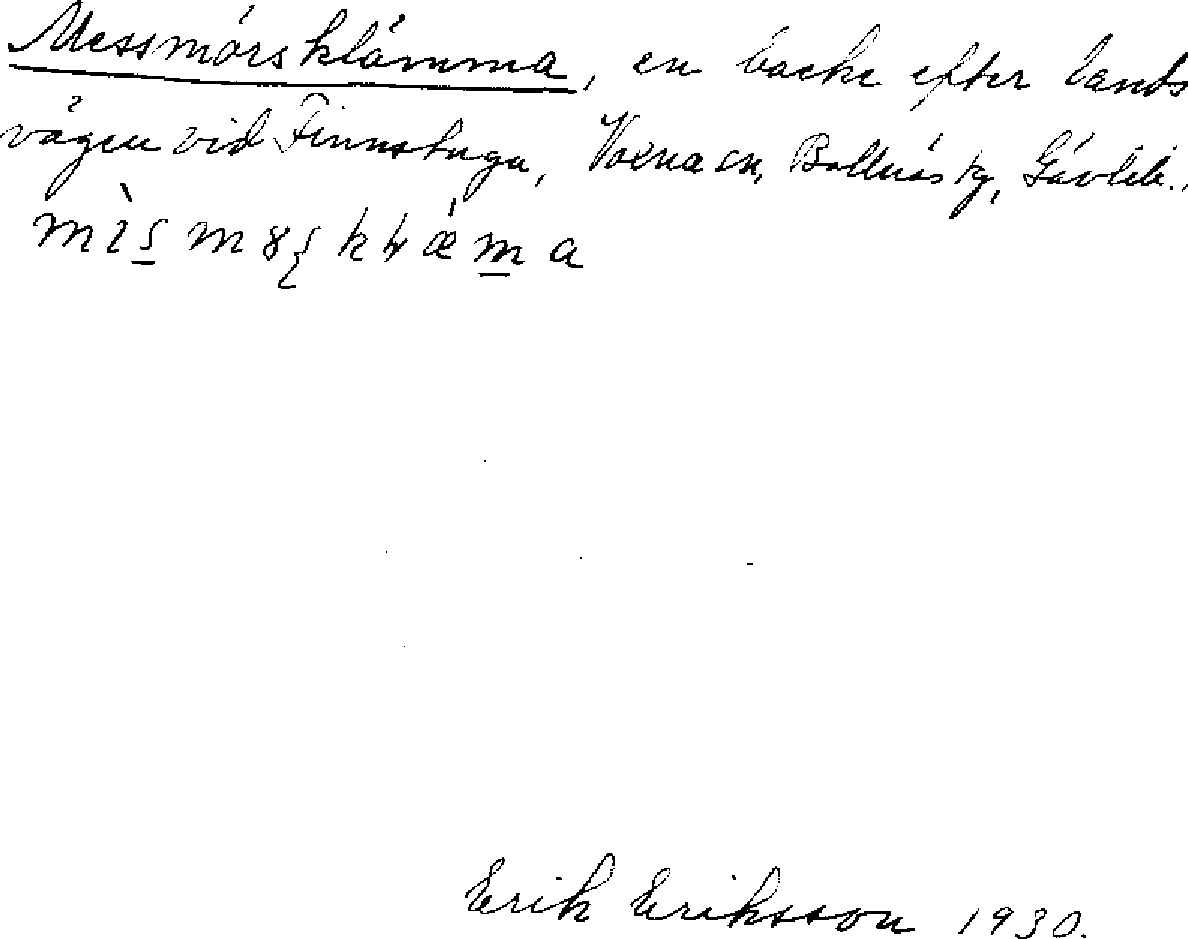 Messmörsklämma, en backe efter lands
vägen vid Finnstuga, Voxna sn, Bollnäs tg, Gävleb.,
Erik Eriksson 1930.